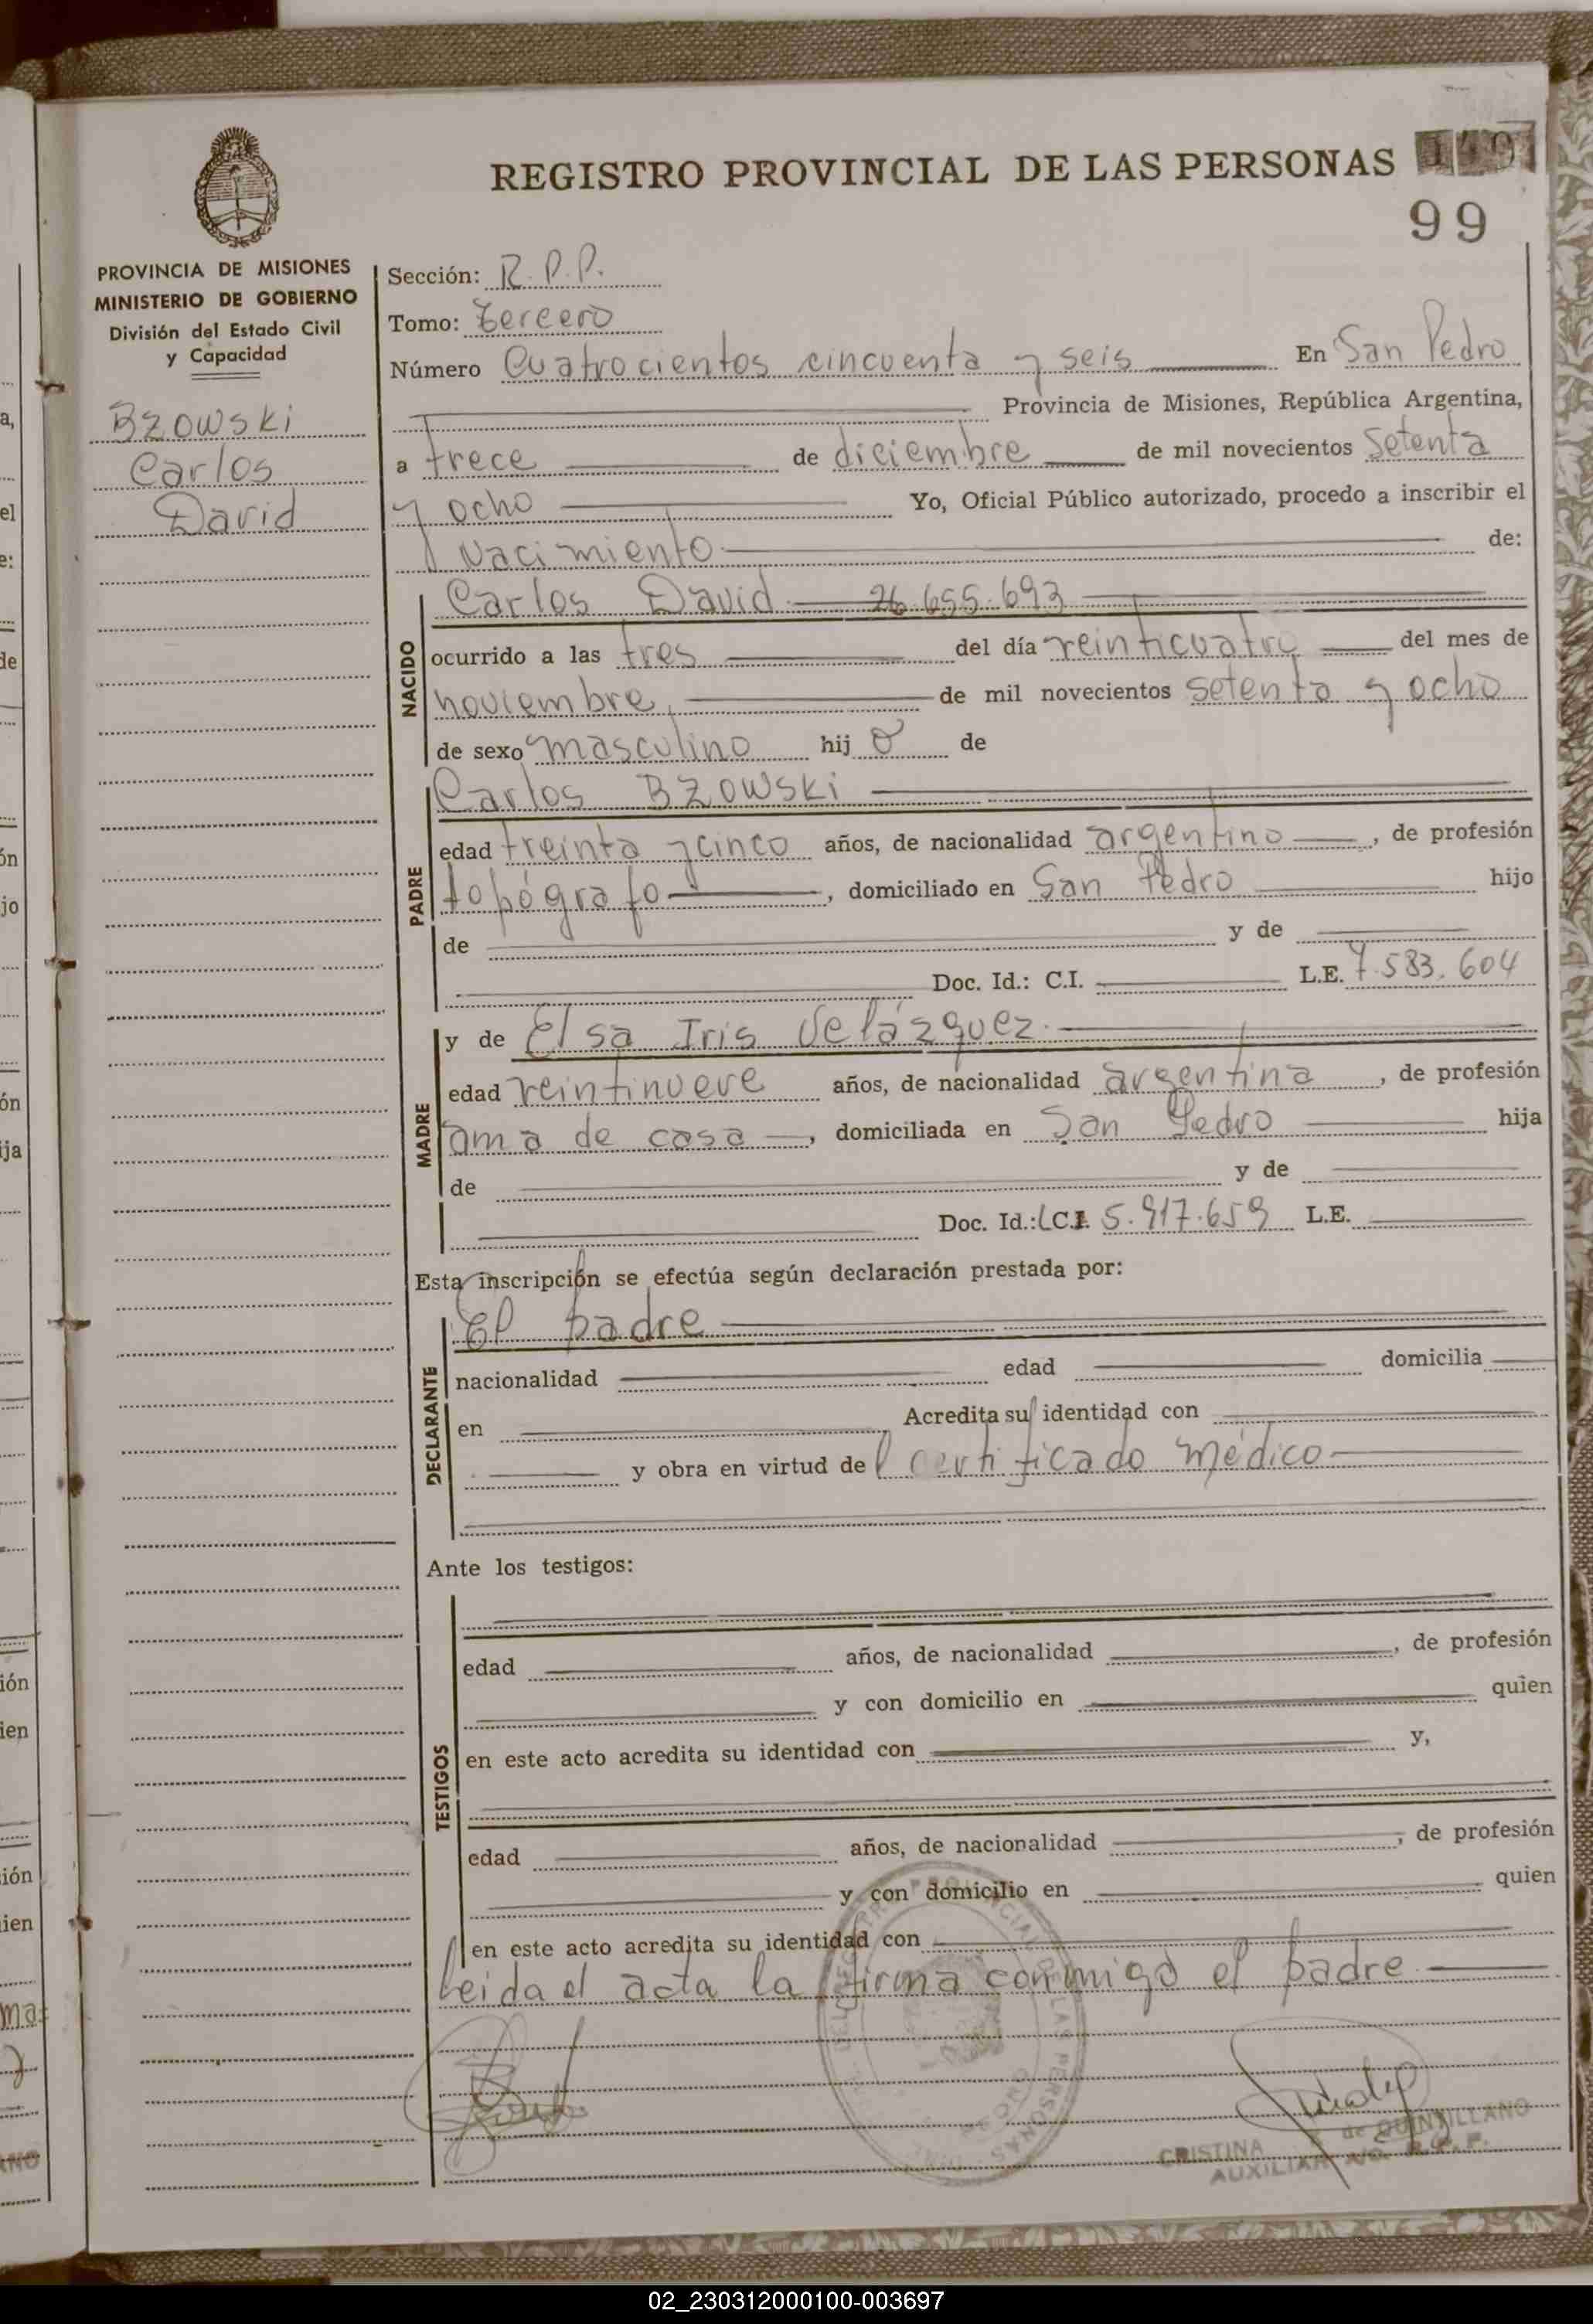 REGISTRO PROVINCIAL DE LAS PERSONAS
99
PROVINCIA DE MISIONES
MINISTERIO DE GOBIERNO
División del Estado Civil
y Capacidad
Bzowski
Carlos
David
Sección: R.P.P.
Tomo: tercero
Número Cuatrocientos cincuenta y seis En San Pedro
Provincia de Misiones, República Argentina,
a trece de diciembre de mil novecientos setenta
y ocho Yo, Oficial Público autorizado, procedo a inscribir el
Nacimiento de:
NACIDO
Carlos David 26.655.693
ocurrido a las tres del día veinticuatro del mes de
noviembre, de mil novecientos setenta y ocho
de sexo masculino hij o de
PADRE
Carlos Bzowski
edad treinta y cinco años, de nacionalidad argentino, de profesión
topógrafo, domiciliado en San Pedro hijo
de y de
Doc. Id.: C.I. L.E. 7.583.604
MADRE
y de Elsa Iris Velázquez
edad veintinueve años, de nacionalidad argentina, de profesión
ama de casa, domiciliada en San Pedro hija
de y de
Doc. Id.: L.C. 5.917.659 L.E.
Esta inscripción se efectúa según declaración prestada por:
DECLARANTE
El padre
nacionalidad edad domicilia
en Acredita su identidad con
y obra en virtud del certificado médico
Ante los testigos:
TESTIGOS
edad años, de nacionalidad , de profesión
y con domicilio en quien
en este acto acredita su identidad con y,
edad años, de nacionalidad , de profesión
y con domicilio en quien
en este acto acredita su identidad con
leida el acta la firma conmigo el padre
CRISTINA de QUINTILLANO
AUXILIAR
02_230312000100-003697